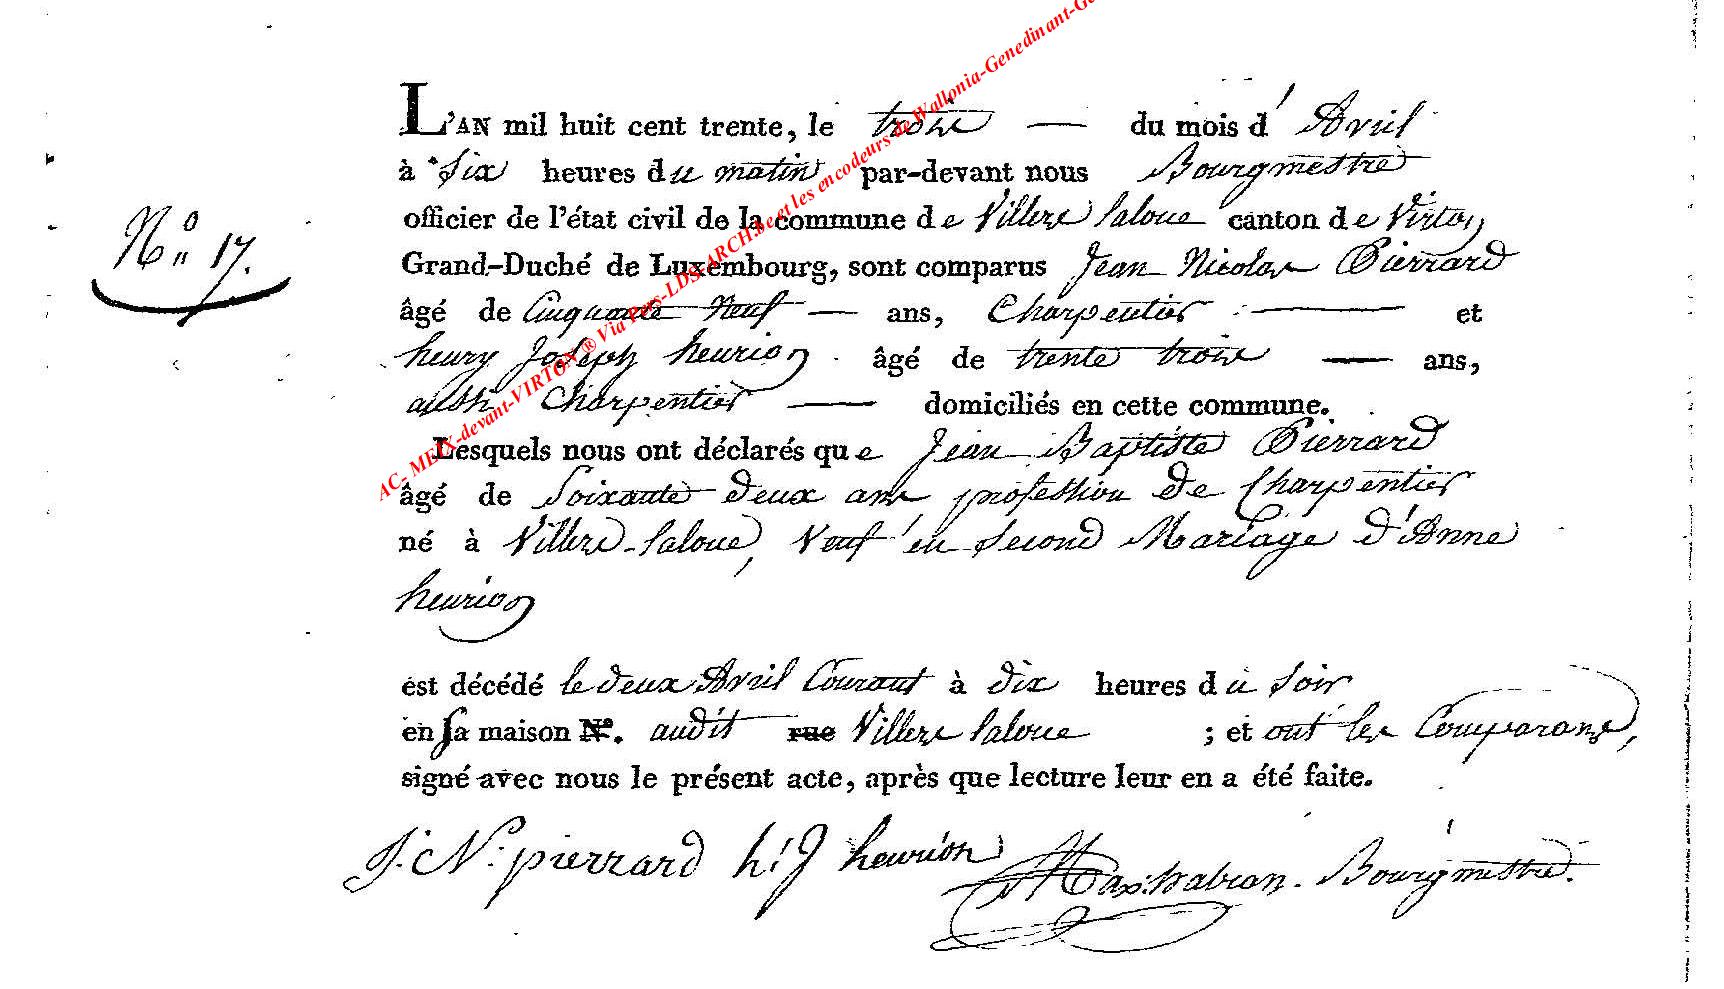 L'AN mil huit cent trente, le trois — du mois d'Avril
à Six heures du matin par-devant nous Bourgmestre
officier de l'état civil de la commune de Villers laloue canton de Virton
Grand-Duché de Luxembourg, sont comparus Jean Nicolas Pierrard
N° 17.
âgé de Cinquante Neuf — ans, Charpentier — et
henry Joseph henrion âgé de trente trois — ans,
aussi Charpentier — domiciliés en cette commune.
Lesquels nous ont déclarés que Jean Baptiste Pierrard
âgé de Soixante deux ans profession de Charpentier
né à Villers-laloue, Veuf en Second Mariage d'Anne
henrion
est décédé le deux Avril Courant à dix heures du Soir
en Sa maison N°. audit rue Villers laloue ; et ont les Comparans,
signé avec nous le présent acte, après que lecture leur en a été faite.
J. N. pierrard h. J henrion Bourgmestre.
AC- MEIX-devant-VIRTON ® Via Prs-LDS-ARCH.be et les encodeurs de Wallonia-Genedinant-Ge